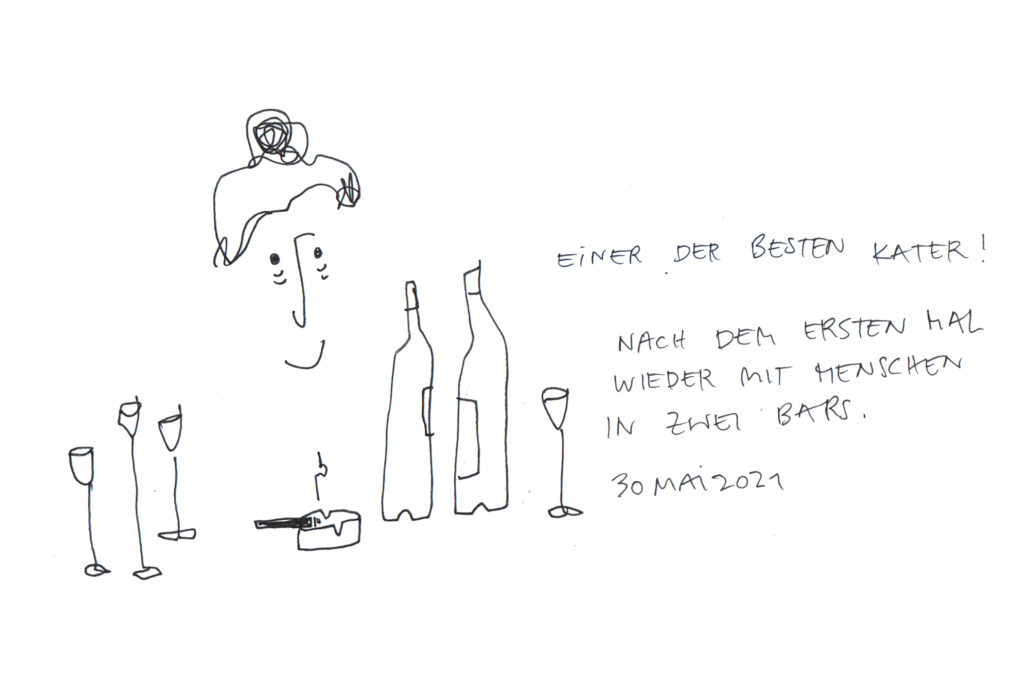 EINER DER BESTEN KATER!
NACH DEM ERSTEN MAL
WIEDER MIT MENSCHEN
IN ZWEI BARS.
30 MAI 2021